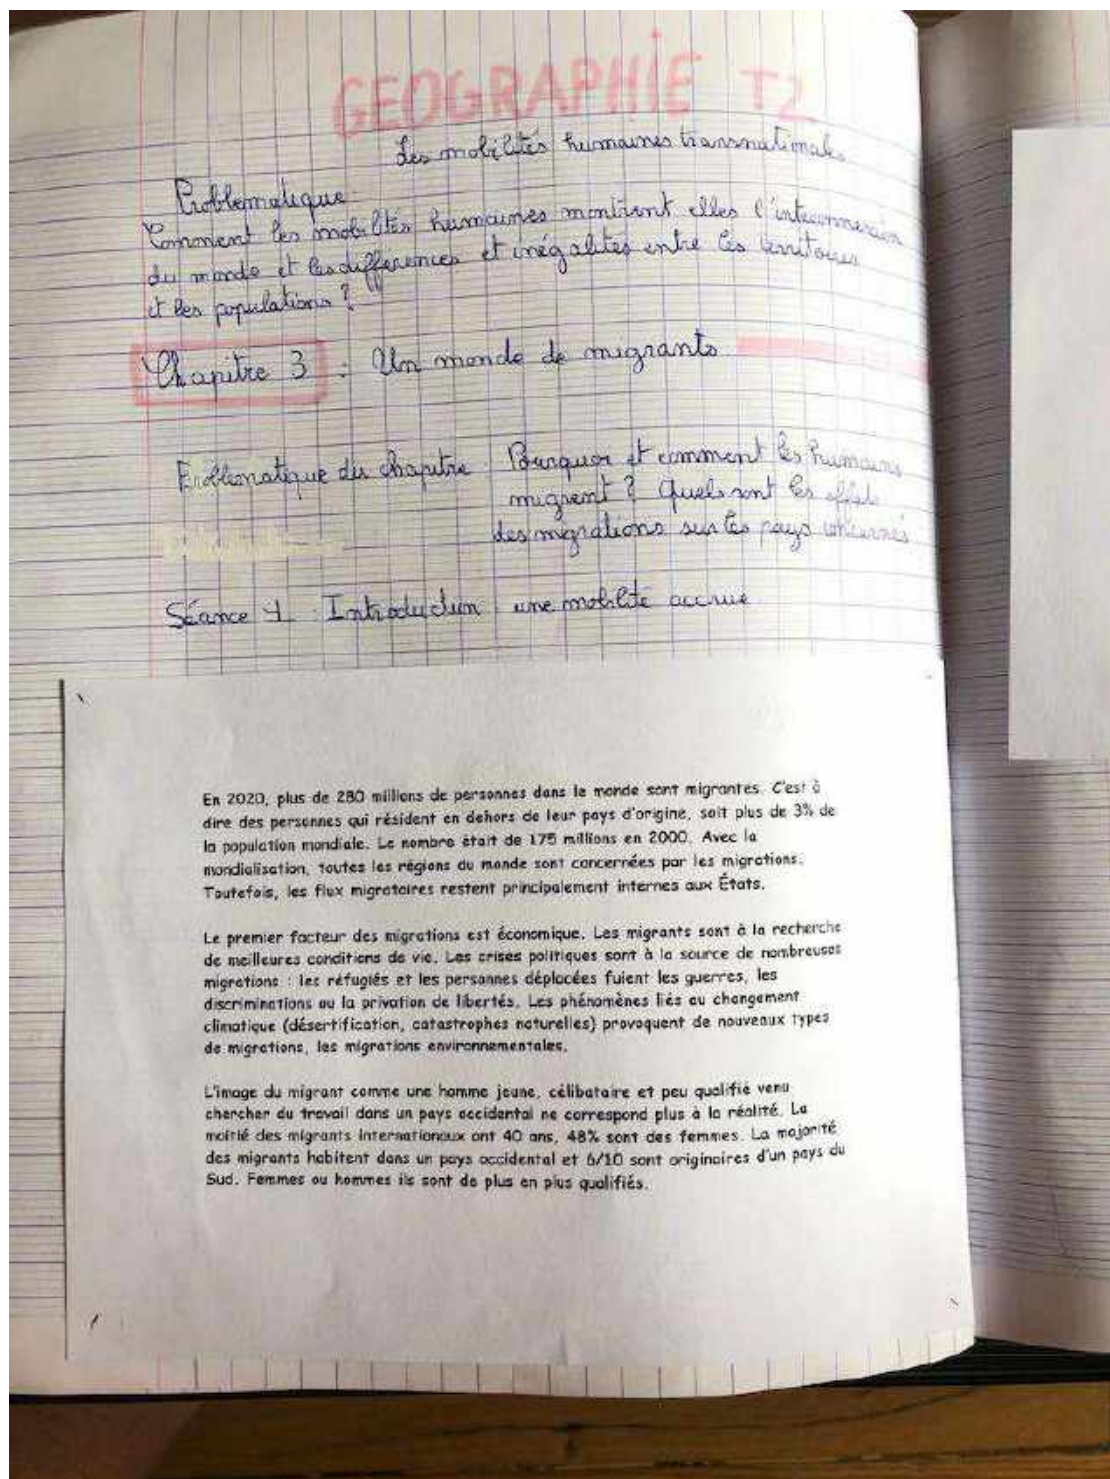 GEOGRAPHIE T2
Les mobilités humaines transnationales
Problematique
Comment les mobilités humaines montrent elles l'interconnexion
du monde et les differences et inégalités entre les territoires
et les populations ?
Chapitre 3 : Un monde de migrants
Problematique du chapitre Pourquoi et comment les humains
migrent ? Quels sont les effets
des migrations sur les pays concernés
Séance 1 Introduction : une mobilité accrue
En 2020, plus de 280 millions de personnes dans le monde sont migrantes. C'est à
dire des personnes qui résident en dehors de leur pays d'origine, soit plus de 3% de
la population mondiale. Le nombre était de 175 millions en 2000. Avec la
mondialisation, toutes les régions du monde sont concernées par les migrations.
Toutefois, les flux migratoires restent principalement internes aux États.
Le premier facteur des migrations est économique. Les migrants sont à la recherche
de meilleures conditions de vie. Les crises politiques sont à la source de nombreuses
migrations : les réfugiés et les personnes déplacées fuient les guerres, les
discriminations ou la privation de libertés. Les phénomènes liés au changement
climatique (désertification, catastrophes naturelles) provoquent de nouveaux types
de migrations, les migrations environnementales.
L'image du migrant comme une homme jeune, célibataire et peu qualifié venu
chercher du travail dans un pays occidental ne correspond plus à la réalité. La
moitié des migrants internationaux ont 40 ans, 48% sont des femmes. La majorité
des migrants habitent dans un pays occidental et 6/10 sont originaires d'un pays du
Sud. Femmes ou hommes ils sont de plus en plus qualifiés.